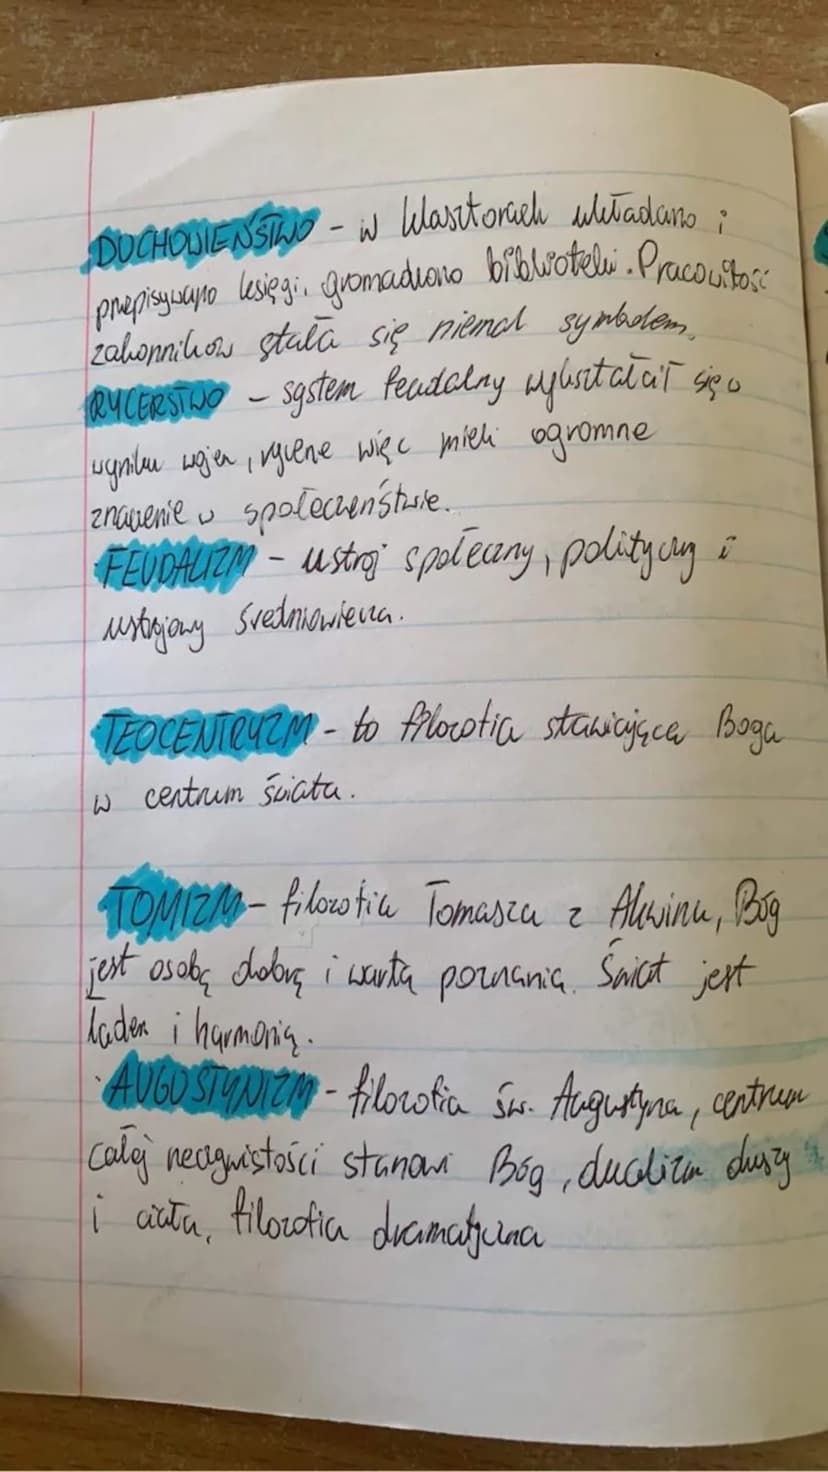 DUCHOWIEŃSTWO - w klasztorach układano i
przepisywano księgi, gromadzono biblioteki. Pracowitość
zakonników stała się niemal symbolem.
RYCERSTWO - system feudalny wykształcił się w
wyniku wojen, rycerze więc mieli ogromne
znaczenie w społeczeństwie.
FEUDALIZM - ustrój społeczny, polityczny i
ustrojowy średniowiecza.
TEOCENTRYZM - to filozofia stawiająca Boga
w centrum świata.
TOMIZM - filozofia Tomasza z Akwinu, Bóg
jest osobą dobrą i wartą poznania. Świat jest
ładem i harmonią.
AUGUSTYNIZM - filozofia św. Augustyna, centrum
całej rzeczywistości stanowi Bóg, dualizm duszy
i ciała, filozofia dramatyczna